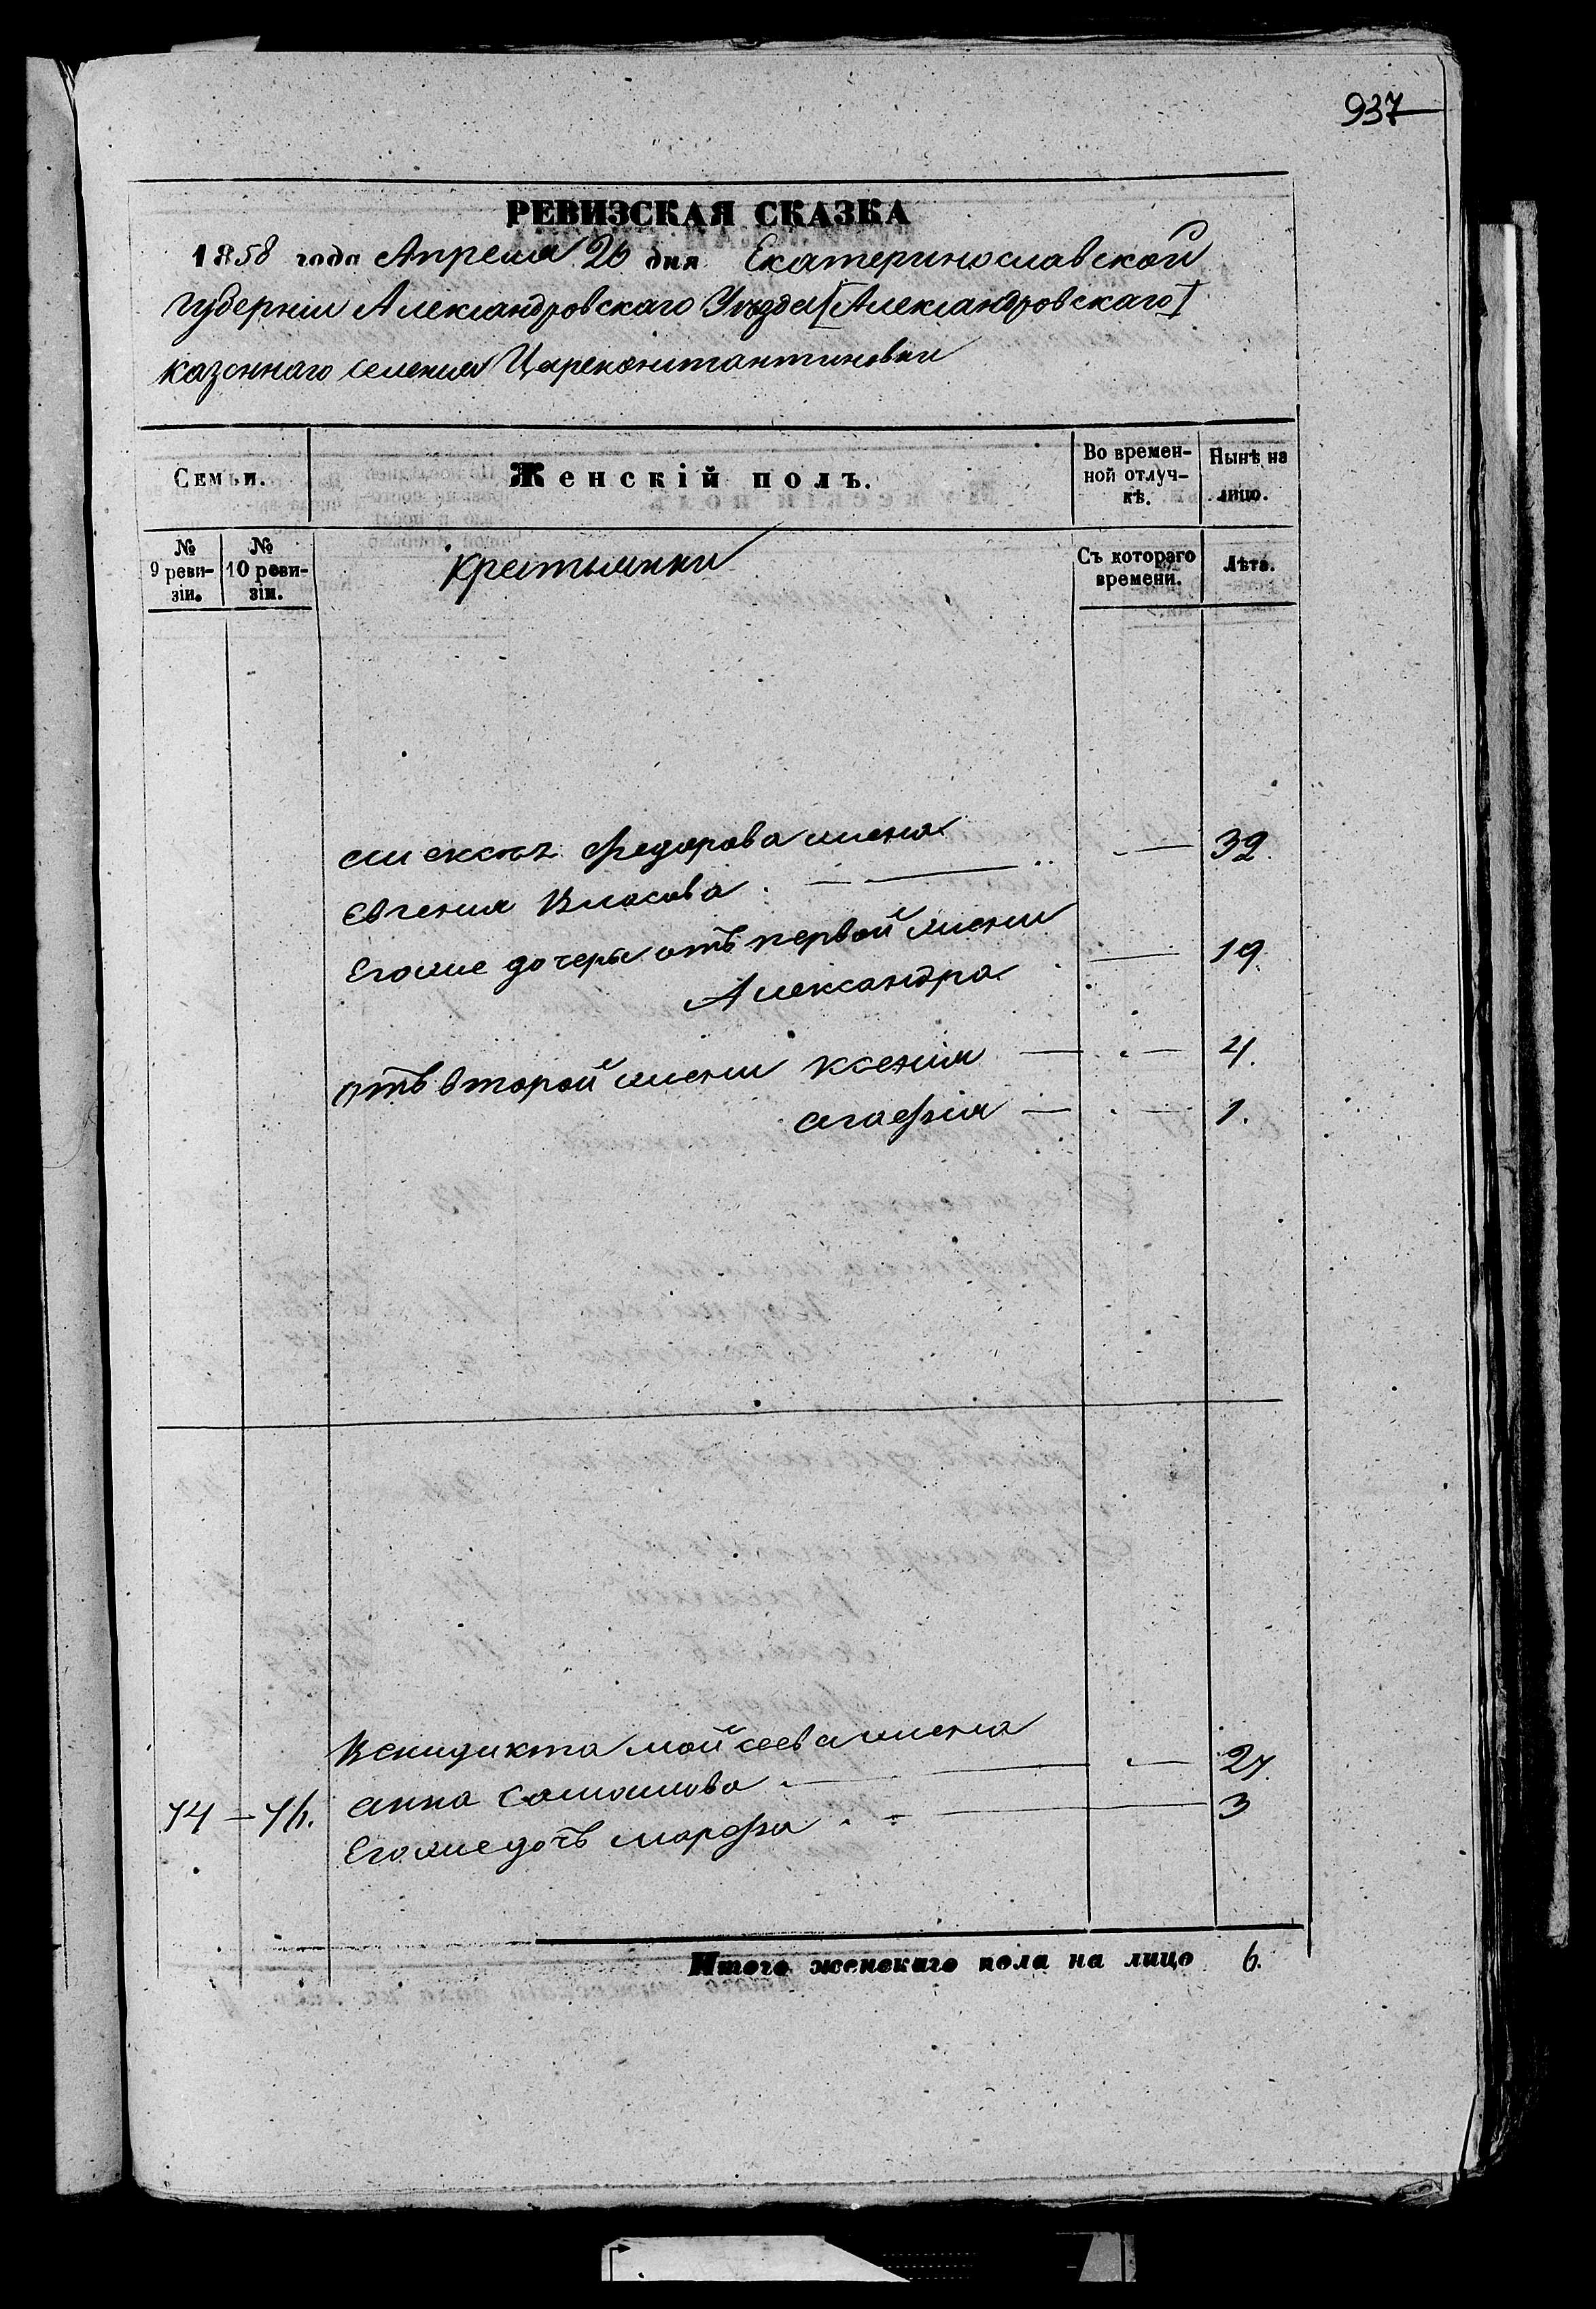 937
РЕВИЗСКАЯ СКАЗКА
1858 года Апреля 26 дня Екатеринославской
Губерніи Александровскаго Уѣзда [Александровскаго]
казеннаго селения Цареконстантиновки
Семьи.
Женскій полъ.
Во времен-
ной отлуч-
кѣ.
Нынѣ на
лицо.
№
9 реви-
зіи.
№
10 реви-
зіи.
Крестьянки
Съ котораго
времени.
Лѣта.
Федорова жена
Евгения Власова — — 32.
Егоже дочери отъ первой жены
Александра — 19.
Отъ второй жены Ксенія — — 4.
Агафія — — 1.
Венидикта Мойсеева жена
74 — 76. Анна — — 27.
Егоже дочь Марфа — 3
Итого женскаго пола на лицо 6.